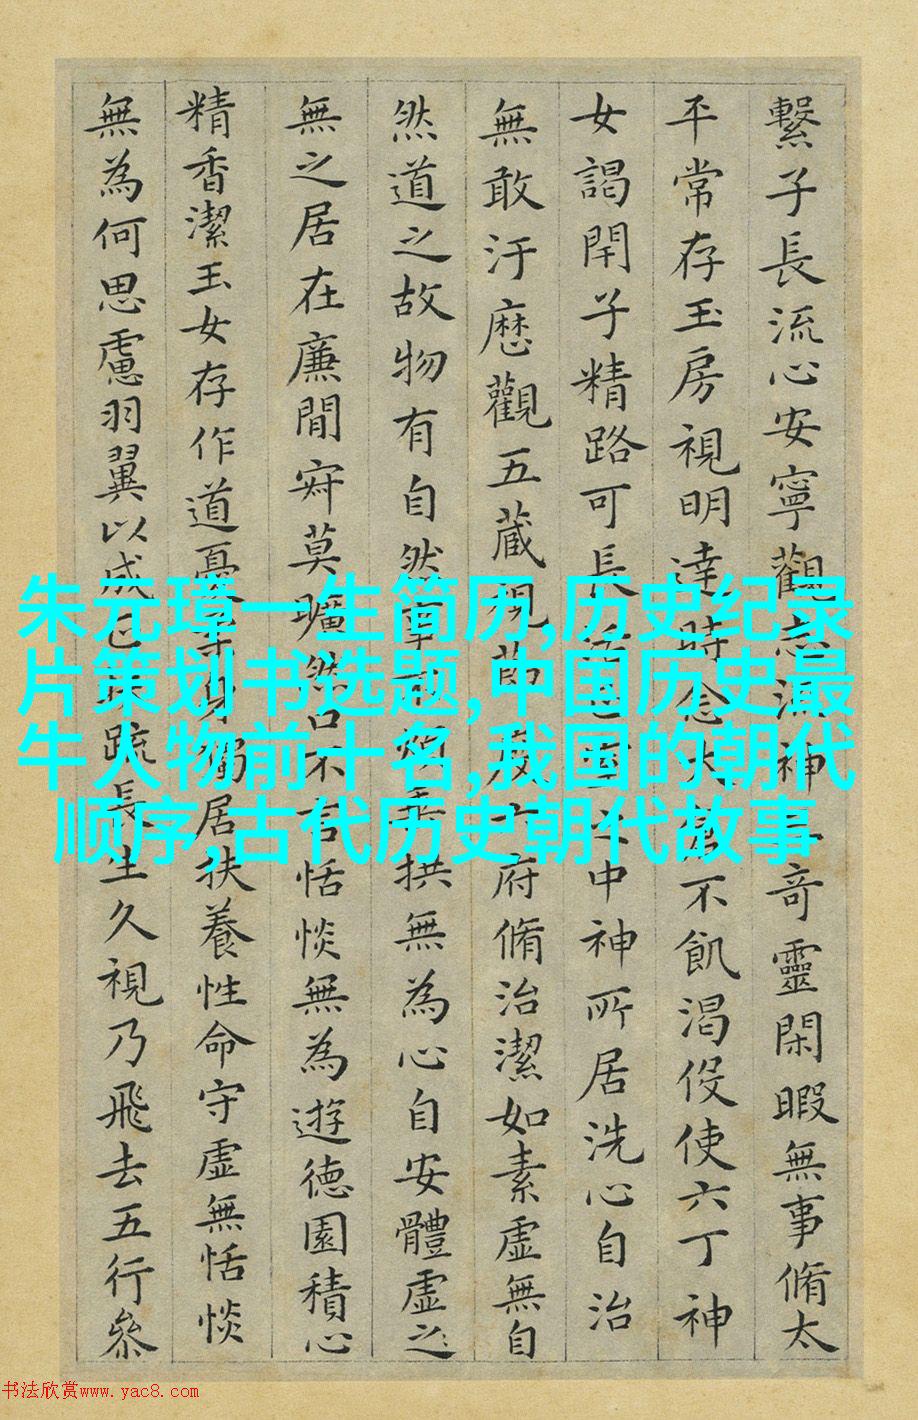 繫子長流心安寧觀志流神奇靈閑暇無事脩太
平常存玉房視明達時念大倉不飢渴役使六丁神
女謁閉子精路可長活室中神所居洗心自治
無敢汙歷觀五藏視節度六府脩治潔如素虛無自
然道之故物有自然事煩垂拱無為心自安體虛之
無之居在廉間寂莫曠然口不言恬惔無為遊德園積心
精香潔玉女存作道憂柔身獨居扶養性命守虛無恬惔
無為何思慮羽翼以成正疏長生久視乃飛去五行參
朱元璋一生简历,历史纪录
片策划书选题,中国历史最
牛人物前十名,我国的朝代
顺序,古代历史朝代故事
书法欣赏www.yac8.com